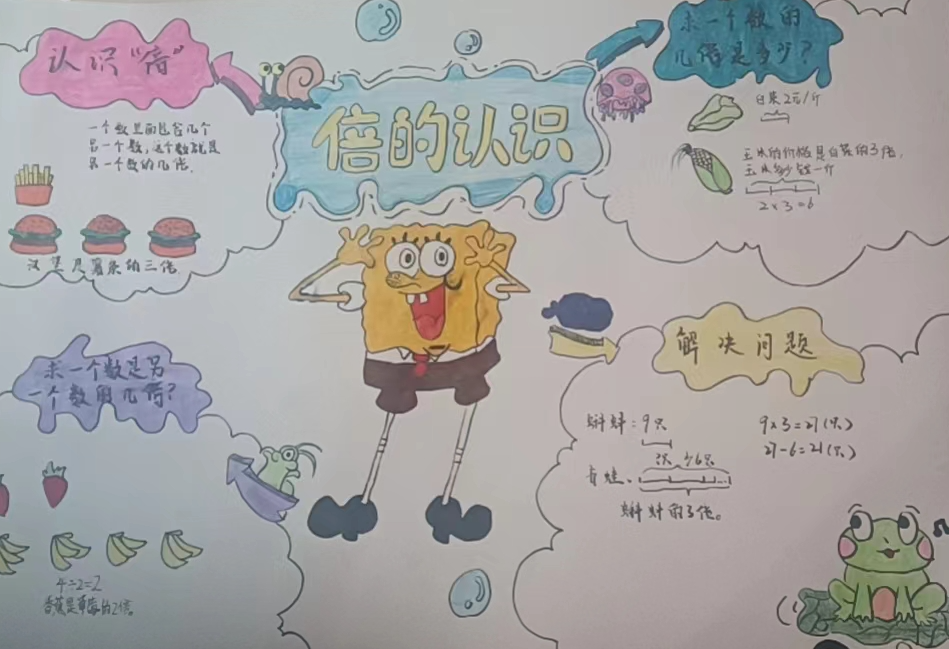 倍的认识
认识"倍"
一个数里面包含几个
另一个数,这个数就是
另一个数的几倍.
汉堡是薯条的三倍
求一个数的
几倍是多少?
白菜2元/斤
玉米的价格是白菜的3倍,
玉米多少钱一斤
2×3=6
求一个数是另
一个数的几倍?
4÷2=2
香蕉是草莓的2倍
解决问题
蝌蚪:9只
9×3=27(只)
27-6=21(只)
少6只
青蛙:
蝌蚪的3倍。